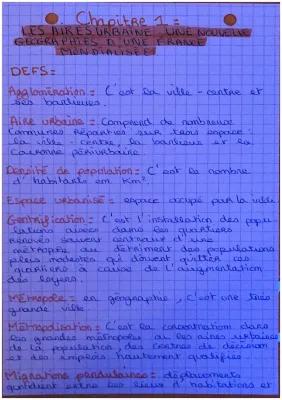 Chapitre 1 =
LES AIRES URBAINE UNE NOUVELLE
GEOGRAPHIES D UNE FRANCE
MONDIALISÉE
DEFS=
Agglomération = C'est la ville-centre et
ses banlieues.
Aire urbaine = Comprend de nombreuse
Communes Réparties sur trois espace :
la ville-centre, la banlieue et la
Couronne périurbaine
Densité de population = C'est le nombre
d'habitants em Km².
Espace urbanisé = espace occupé par la ville
Gentrification = C'est l'installation des popu
lations aisées dans les quartiers
rénovés souvent centraux d'une
métropole au détriment des populations
plus modestes qui doivent quitter ces
quartiers à cause de l'augmentation
des loyers.
Métropole = en géographie, c'est une très
grande ville
Métropolisation = C'est la concentration dans
les grandes métropoles ou les aires urbaines
de la population, des centres de décision
et des emplois hautement qualifiés
Migrations pendulaires = déplacements
quotidient entre les lieux d'habitations et